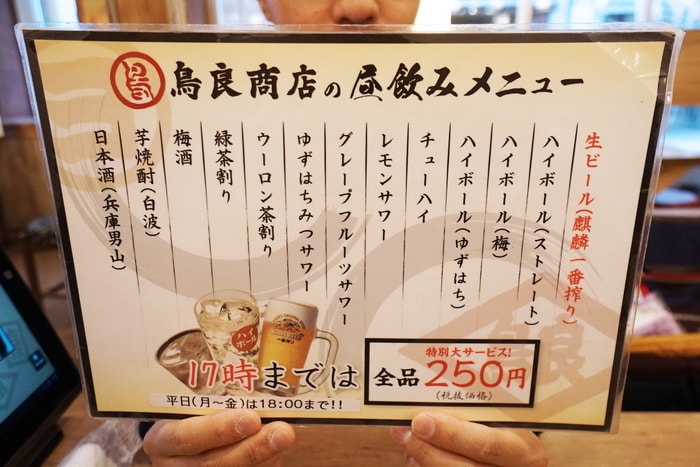 鳥良商店の昼飲みメニュー
生ビール(麒麟一番搾り)
ハイボール(ストレート)
ハイボール(梅)
ハイボール(ゆずはち)
チューハイ
レモンサワー
グレープフルーツサワー
ゆずはちみつサワー
ウーロン茶割り
緑茶割り
梅酒
芋焼酎(白波)
日本酒(兵庫男山)
ハイボール
一番搾り
17時までは
平日(月〜金)は18:00まで!!
特別大サービス!
全品250円
(税抜価格)